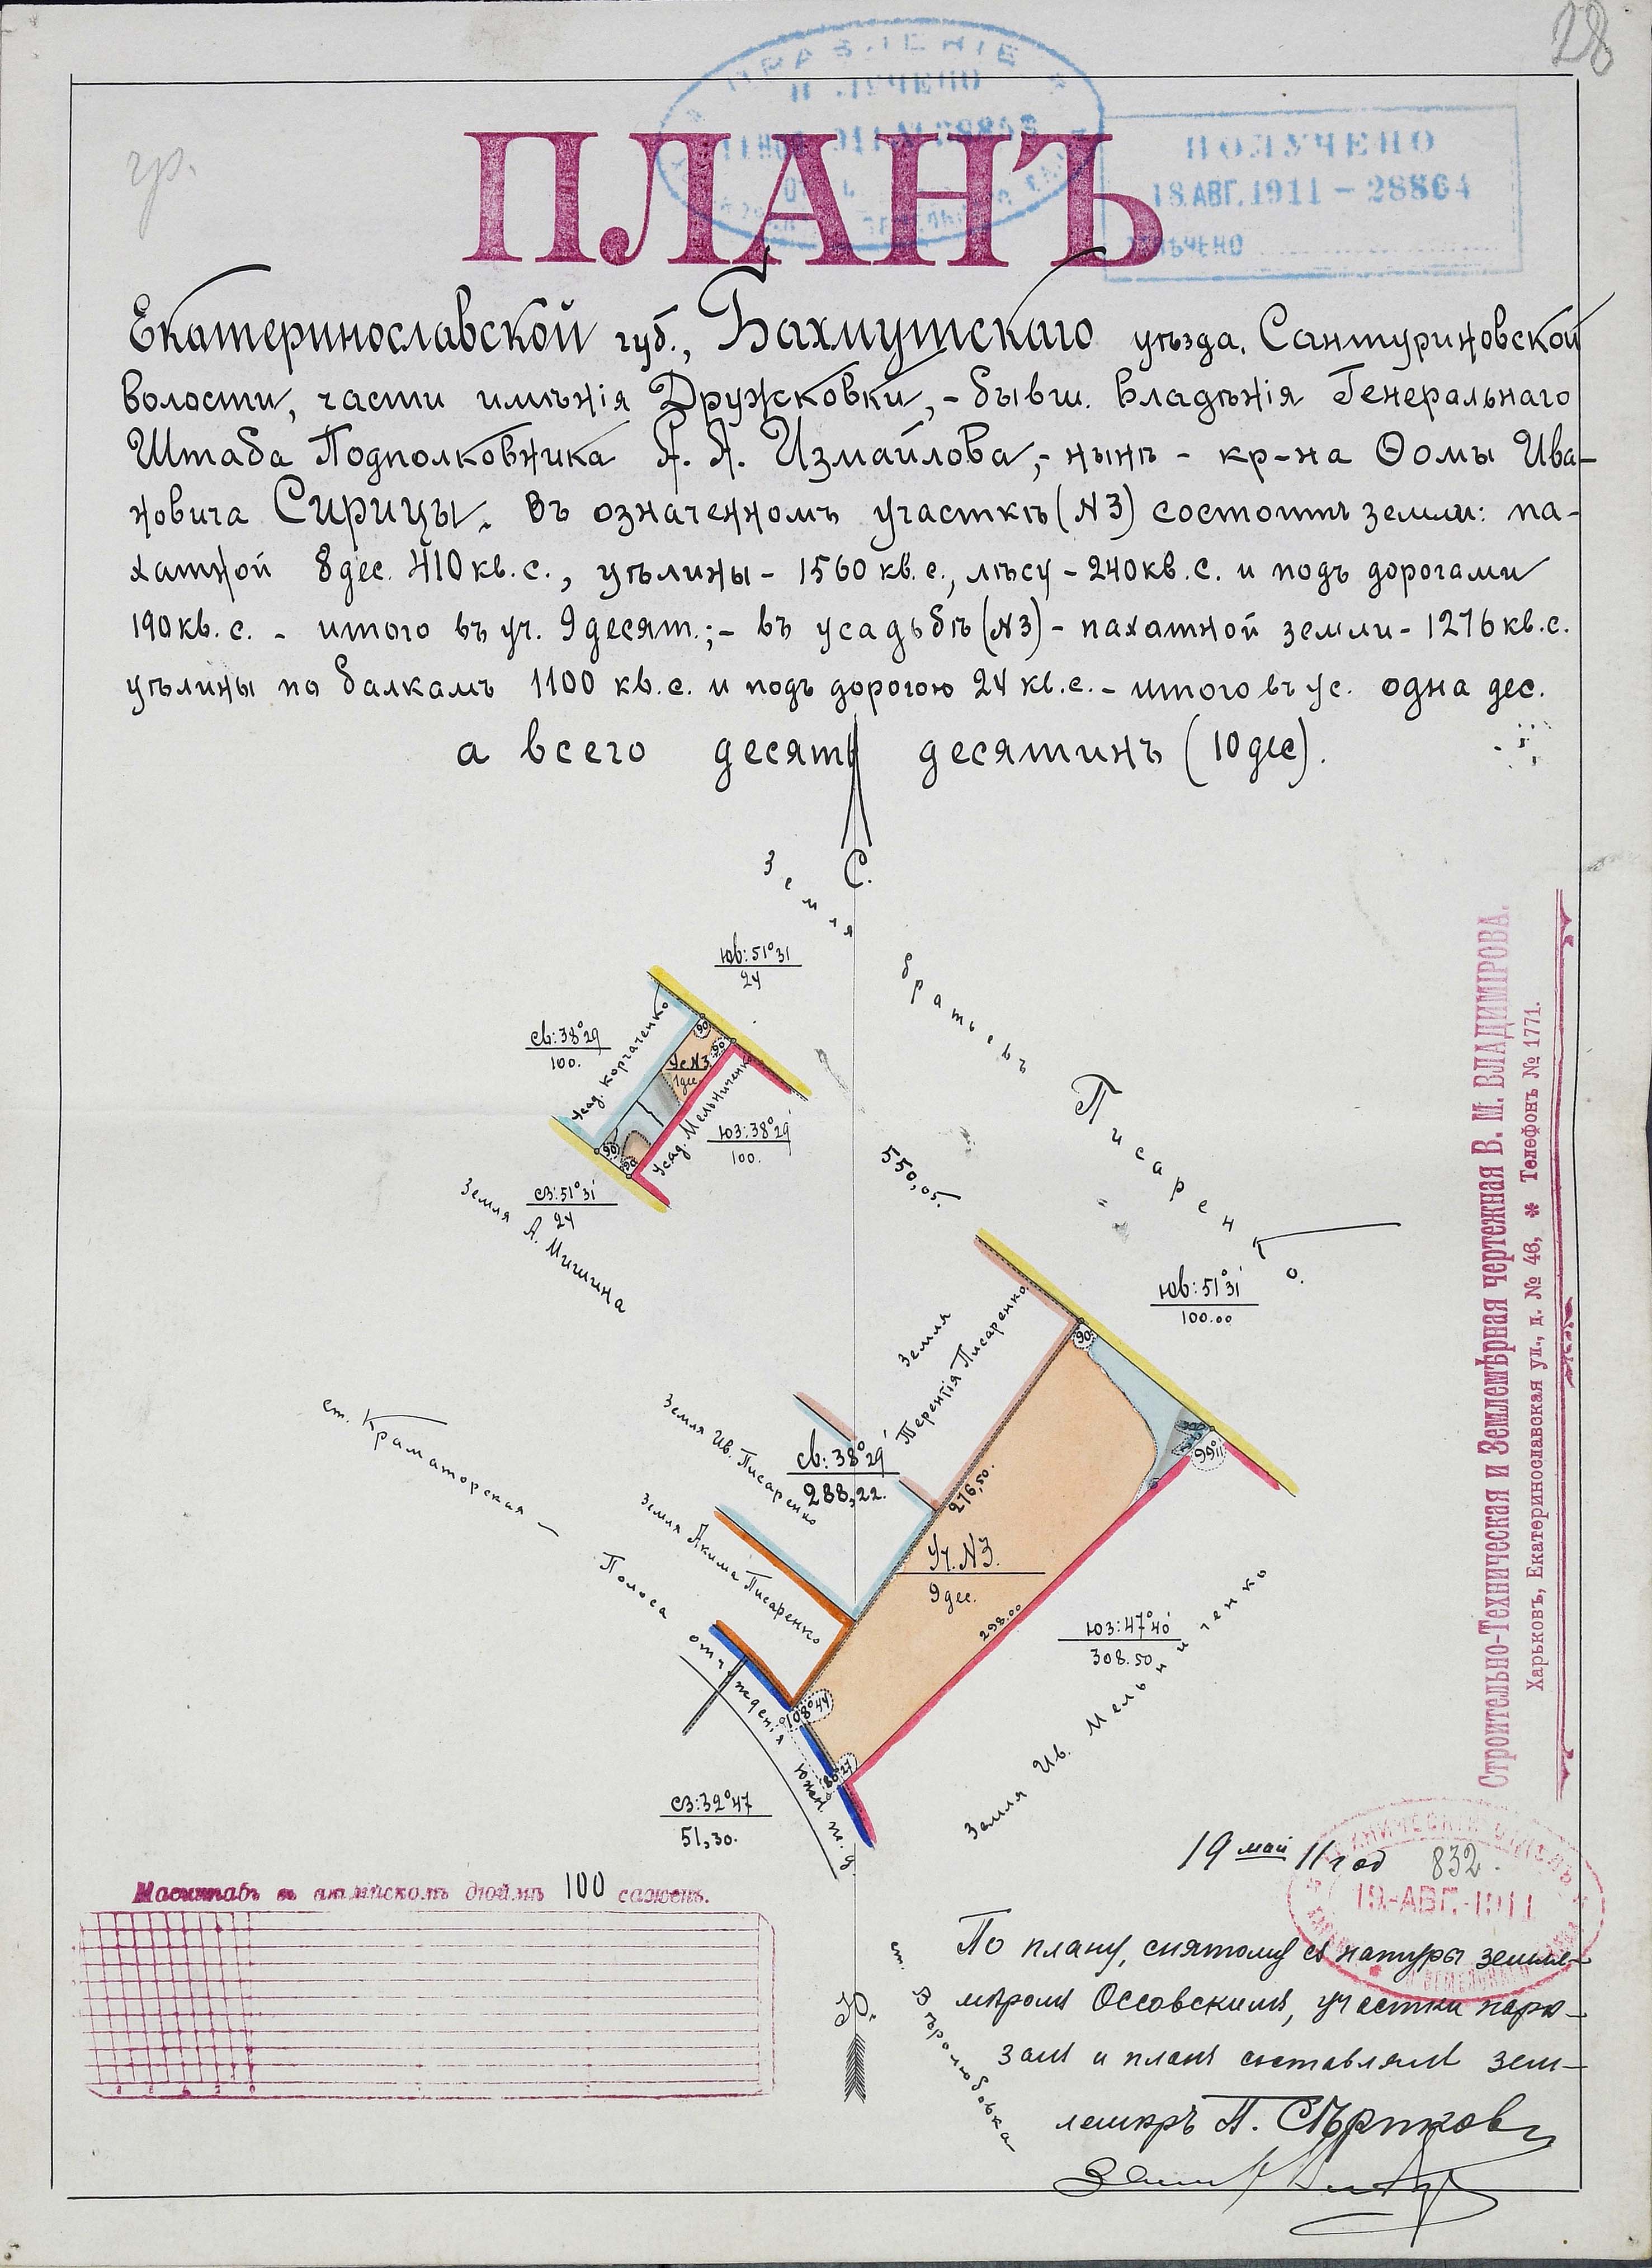 28
гр.
ПРАВЛЕНІЕ
ПОЛУЧЕНО
ПОЛУЧЕНО
18.АВГ.1911 - 28864
ПЛАНЪ
Екатеринославской губ., Бахмутскаго уѣзда, Сантуриновской
волости, части имѣнія Дружковки,- бывш. владѣнія Генеральнаго
Штаба Подполковника А. А. Измайлова,- нынѣ - кр-на Ѳомы Ива-
новича Сирицы. Въ означенномъ участкѣ (N3) состоитъ земли: па-
хатной 8 дес. 410 кв. с., уѣлины - 1560 кв. с., лѣсу - 240 кв. с. и подъ дорогами
190 кв. с. - итого въ уч. 9 десят.;- въ усадьбѣ (N3) - пахатной земли - 1276 кв. с.
уѣлины по балкамъ 1100 кв. с. и подъ дорогою 24 кв. с. - итого въ ус. одна дес.
а всего десять десятинъ (10 дес).
С.
Земля братьевъ Писаренко.
ЮВ: 51°31'
24
СВ: 38°29'
100.
Усад. Корчаченко
90
90
Ус N3
1 дес.
Усад. Мельниченко
ЮЗ: 38°29'
100.
90
90
СЗ: 51°31'
24
Земля А. Мишина
550,05.
ЮВ: 51°31'
100.00
Земля
Терентія Писаренко
90
99°11'
Земля Ив. Писаренко
СВ: 38°29'
288,22.
276,50.
Земля Акима Писаренко
Уч. N3.
9 дес.
298.00
ЮЗ: 47°40'
308.50
Земля Ив. Мельниченко
ст. Краматорская -
Полоса отчужденія Южн. ж. д.
108°44'
СЗ: 32°47'
51,30.
Строительно-Техническая и Землемѣрная чертежная В. М. ВЛАДИМІРОВА.
Харьковъ, Екатеринославская ул., д. № 46, * Телефонъ № 1771.
19 май 11 год
832.
19-АВГ.-1911
Масштабъ въ англійскомъ дюймѣ 100 сажень.
Ю.
По плану, снятому съ натуры земле-
мѣромъ Оссовскимъ, участки нарѣ-
залъ и планъ составлялъ зем-
лемѣръ П.